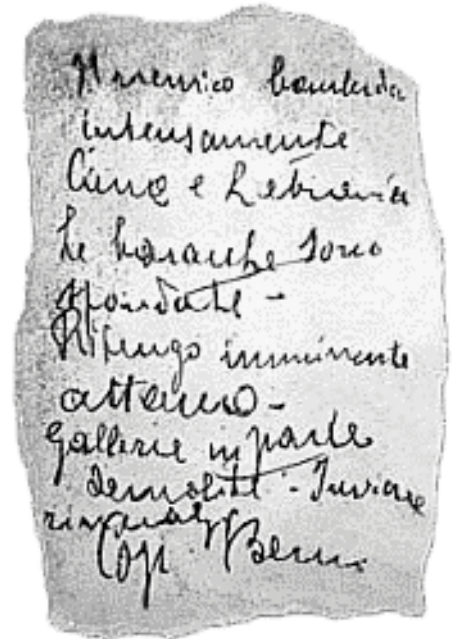 Il nemico bombarda
intensamente
Cima e
Le baracche sono
sfondate -
Ritengo imminente
attacco -
Gallerie in parte
demolite - Inviare
rincalzi
Cap.